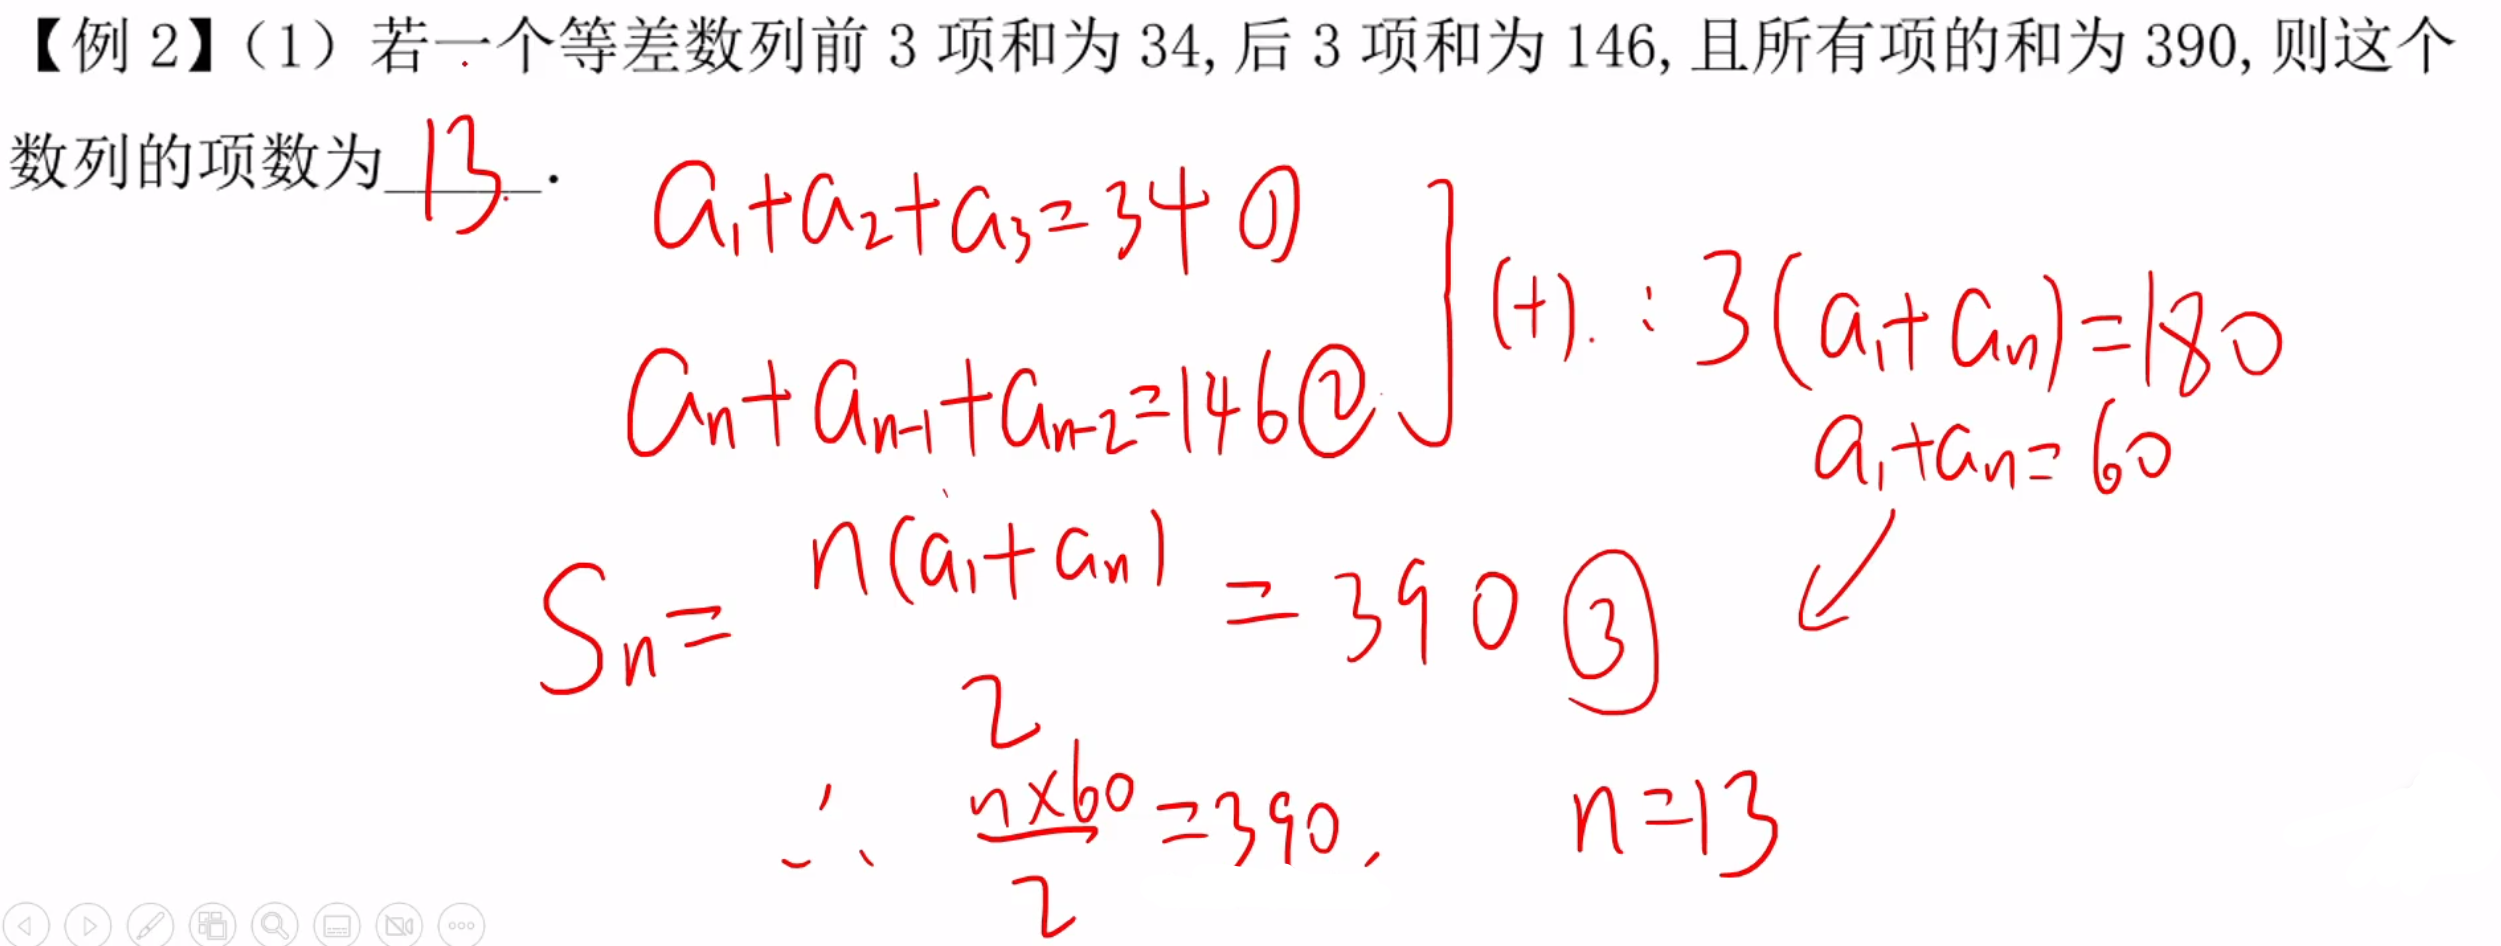 【例 2】（1）若一个等差数列前 3 项和为 34, 后 3 项和为 146, 且所有项的和为 390, 则这个
数列的项数为 13.
a₁+a₂+a₃=34 ①
aₙ+aₙ₋₁+aₙ₋₂=146 ②
(+). : 3(a₁+aₙ)=180
a₁+aₙ=60
Sₙ= n(a₁+aₙ)/2 =390 ③
∴ n×60/2 =390, n=13